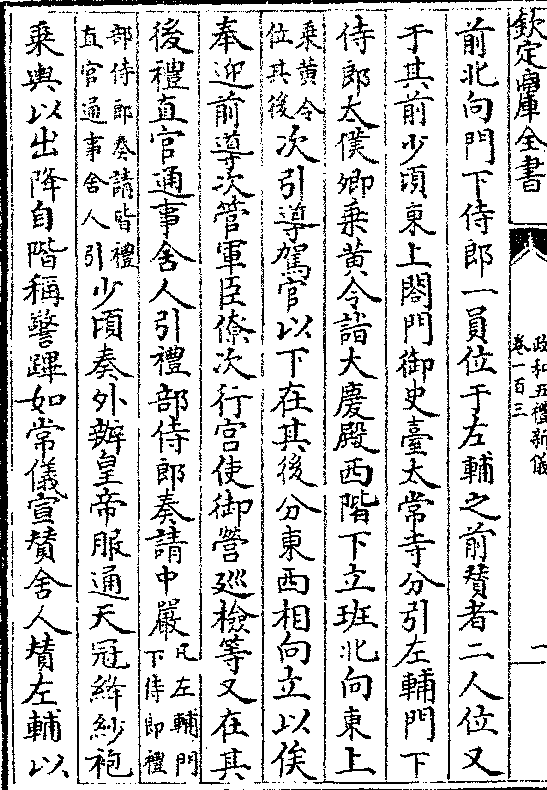 欽定四庫全書
政和五禮新儀
卷一百三
一
前北向門下侍郎一員位于左輔之前贊者二人位又
于其前少頃東上閤門御史臺太常寺分引左輔門下
侍郎太僕卿乗黄令詣大慶殿西階下立班北向東上
乗黄令
位其後
次引導駕官以下在其後分東西相向立以俟
奉迎前導次管軍臣僚次行宫使御營廵檢等又在其
後禮直官通事舍人引禮部侍郎奏請中嚴
凡左輔門
下侍郎禮
部侍郎奏請皆禮
直官通事舍人引
少頃奏外辦皇帝服通天冠絳紗袍
乗輿以出降自階稱警蹕如常儀宣贊舍人贊左輔以